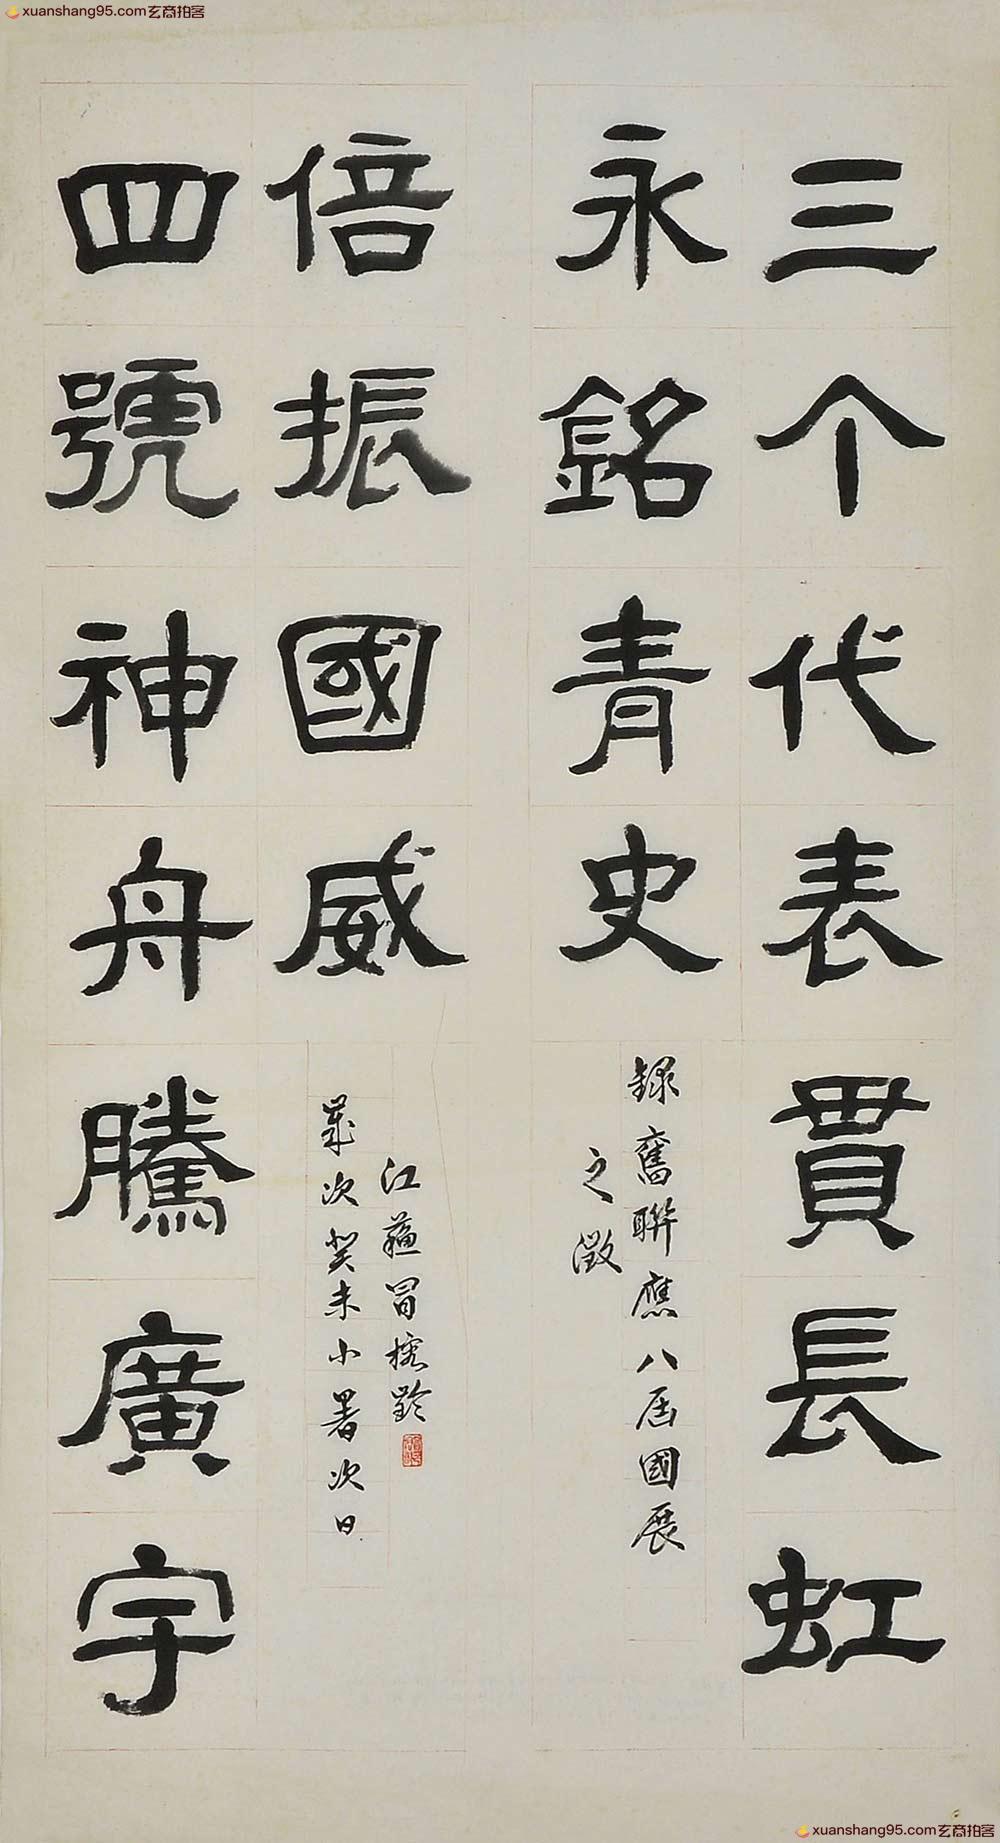 xuanshang95.com玄商拍客
三个代表貫長虹
永銘青史
錄舊聯應八屆國展
之徵
四號神舟騰廣宇
倍振國威
江蘇冒榕齡
歲次癸未小署次日
xuanshang95.com玄商拍客